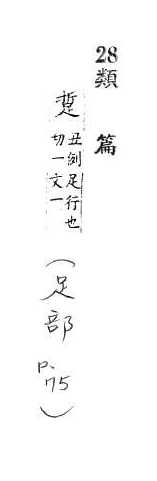 28 類篇
踅 丑例切一足行也文一
(足部 p.75)